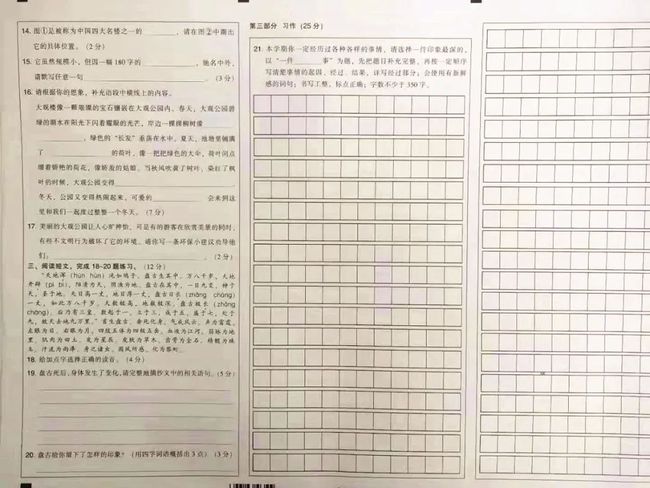 14. 图①是被称为中国四大名楼之一的________，请在图②中圈出
它的具体位置。(2分)
15. 它虽然规模小，但因一幅180字的________，驰名中外，
请默写任意一句________。(3分)
16. 请根据你的想象，补充语段中横线上的内容。
大观楼像一颗璀璨的宝石镶嵌在大观公园内。春天，大观公园碧
绿的湖水在阳光下闪着耀眼的光芒，岸边一棵棵柳树像
________，绿色的“长发”垂荡在水中。夏天，池塘里铺满
了________的荷叶，像一把把绿色的大伞，荷叶间点
缀着娇艳的荷花，像娇羞的姑娘。当秋风吹黄了树叶，染红了枫
叶的时候，大观公园变得________
冬天，公园又变得热闹起来，可爱的________会来到这
里和我们一起度过整整一个冬天。(7分)
17. 美丽的大观公园让人心旷神怡，可是有的游客在欣赏美景的同时，
有些不文明行为破坏了它的环境。请你写一条环保小建议劝导他
们：________。(2分)
三、阅读短文，完成18-20题练习。(12分)
“天地浑（hún hùn）沌如鸡子，盘古生其中。万八千岁，天地
开辟（pì bì），阳清为天，阴浊为地。盘古在其中，一日九变，神于
天，圣于地。天日高一丈，地日厚一丈，盘古日长（zhǎng cháng）
一丈，如此万八千岁。天数极高，地数极深，盘古极长（zhǎng
cháng）。后乃有三皇。数起于一，立于三，成于五，盛于七，处于
九，故天去地九万里。”首生盘古，垂死化身。气成风云，声为雷霆，
左眼为日，右眼为月，四肢五体为四极五岳，血液为江河，筋脉为地
里，肌肉为田土，发为星辰，皮肤为草木，齿骨为金石，精髓为珠
玉，汗流为雨泽。身之诸虫，因风所感，化为黎甿。
18. 给加点字选择正确的读音。(4分)
19. 盘古死后，身体发生了变化，请完整地摘抄文中的相关语句。(5分)
20. 盘古给你留下了怎样的印象？(用四字词语概括出3点)(3分)
第三部分 习作(25分)
21. 本学期你一定经历过各种各样的事情，请选择一件印象最深的，
以“一件________事”为题，先把题目补充完整，再按一定顺序
写清楚事情的起因、经过、结果，详写经过部分；会使用有新鲜
感的词句；书写工整，标点正确；字数不少于350字。